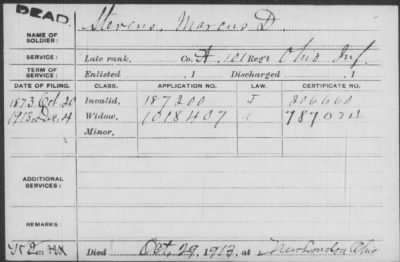 DEAD
NAME OF SOLDIER: Stevens, Marcus D.
SERVICE: Late rank, Co. A, 101 Regt Ohio Inf.
TERM OF SERVICE: Enlisted , 1 Discharged , 1
DATE OF FILING. CLASS. APPLICATION NO. LAW. CERTIFICATE NO.
1873 Oct. 20 Invalid, 187200 206660
1913 Dec. 4 Widow, 1018407
Minor,
ADDITIONAL SERVICES:
REMARKS:
Died Oct. 29, 1913, at New London Ohio